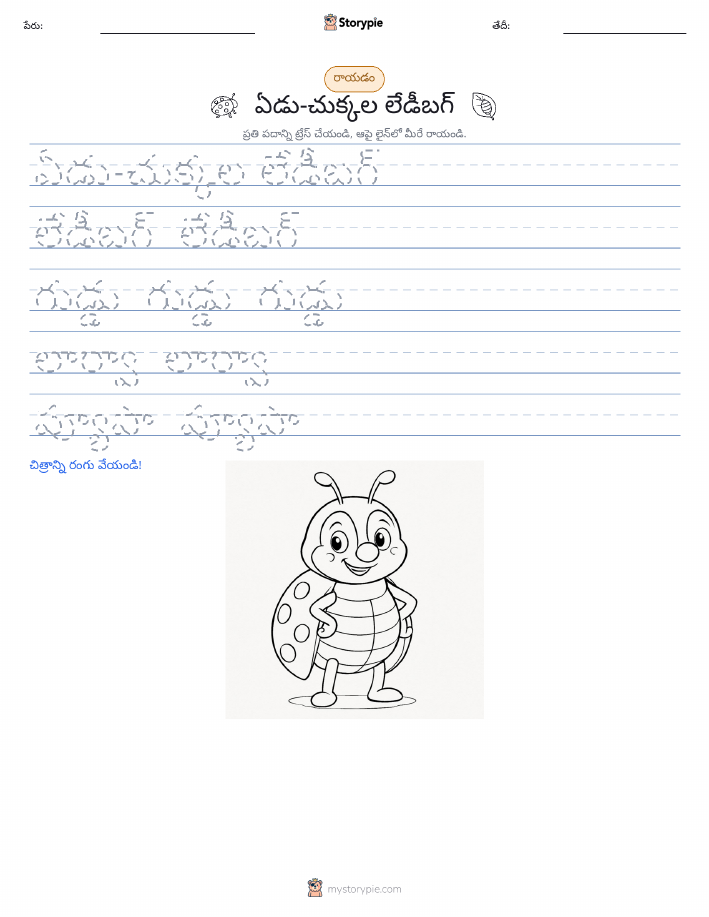 పేరు:
Storypie
తేదీ:
రాయడం
ఏడు-చుక్కల లేడీబగ్
ప్రతి పదాన్ని ట్రేస్ చేయండి, ఆపై లైన్‌లో మీరే రాయండి.
ఏడు-చుక్కల లేడీబగ్
లేడీబగ్ లేడీబగ్
గుడ్డు గుడ్డు గుడ్డు
లార్వా లార్వా
ప్యూపా ప్యూపా
చిత్రాన్ని రంగు వేయండి!
mystorypie.com